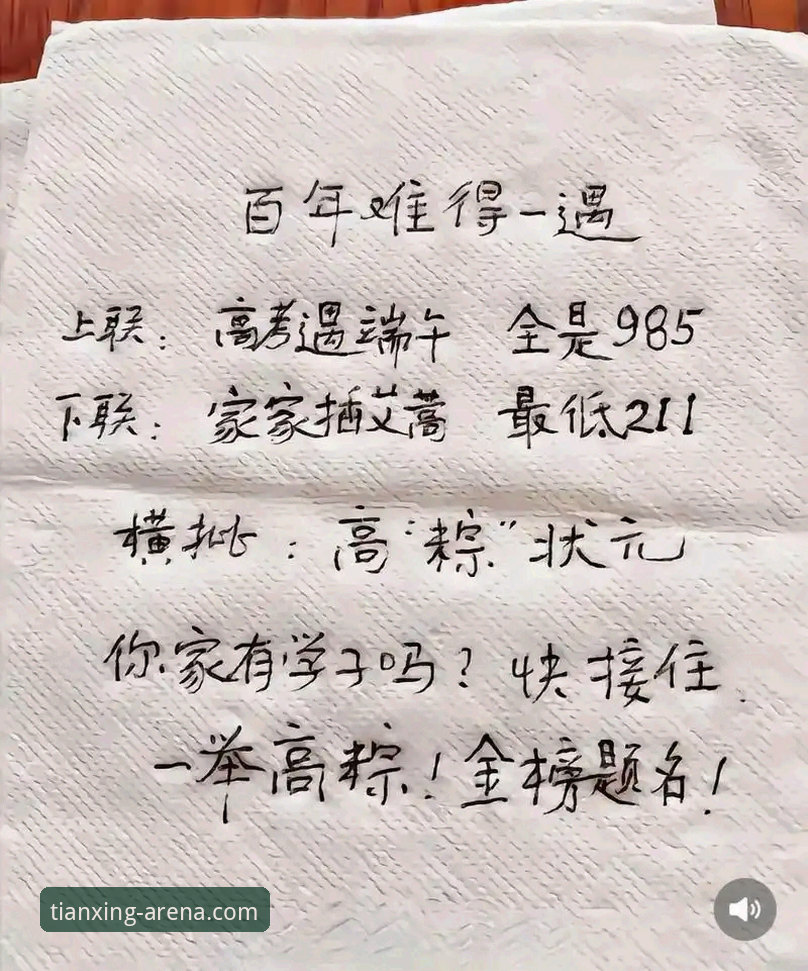 百年难得一遇
上联：高考遇端午 全是985
下联：家家插艾蒿 最低211
横批：高“粽”状元
你家有学子吗？快接住
一举高粽！金榜题名！
tianxing-arena.com